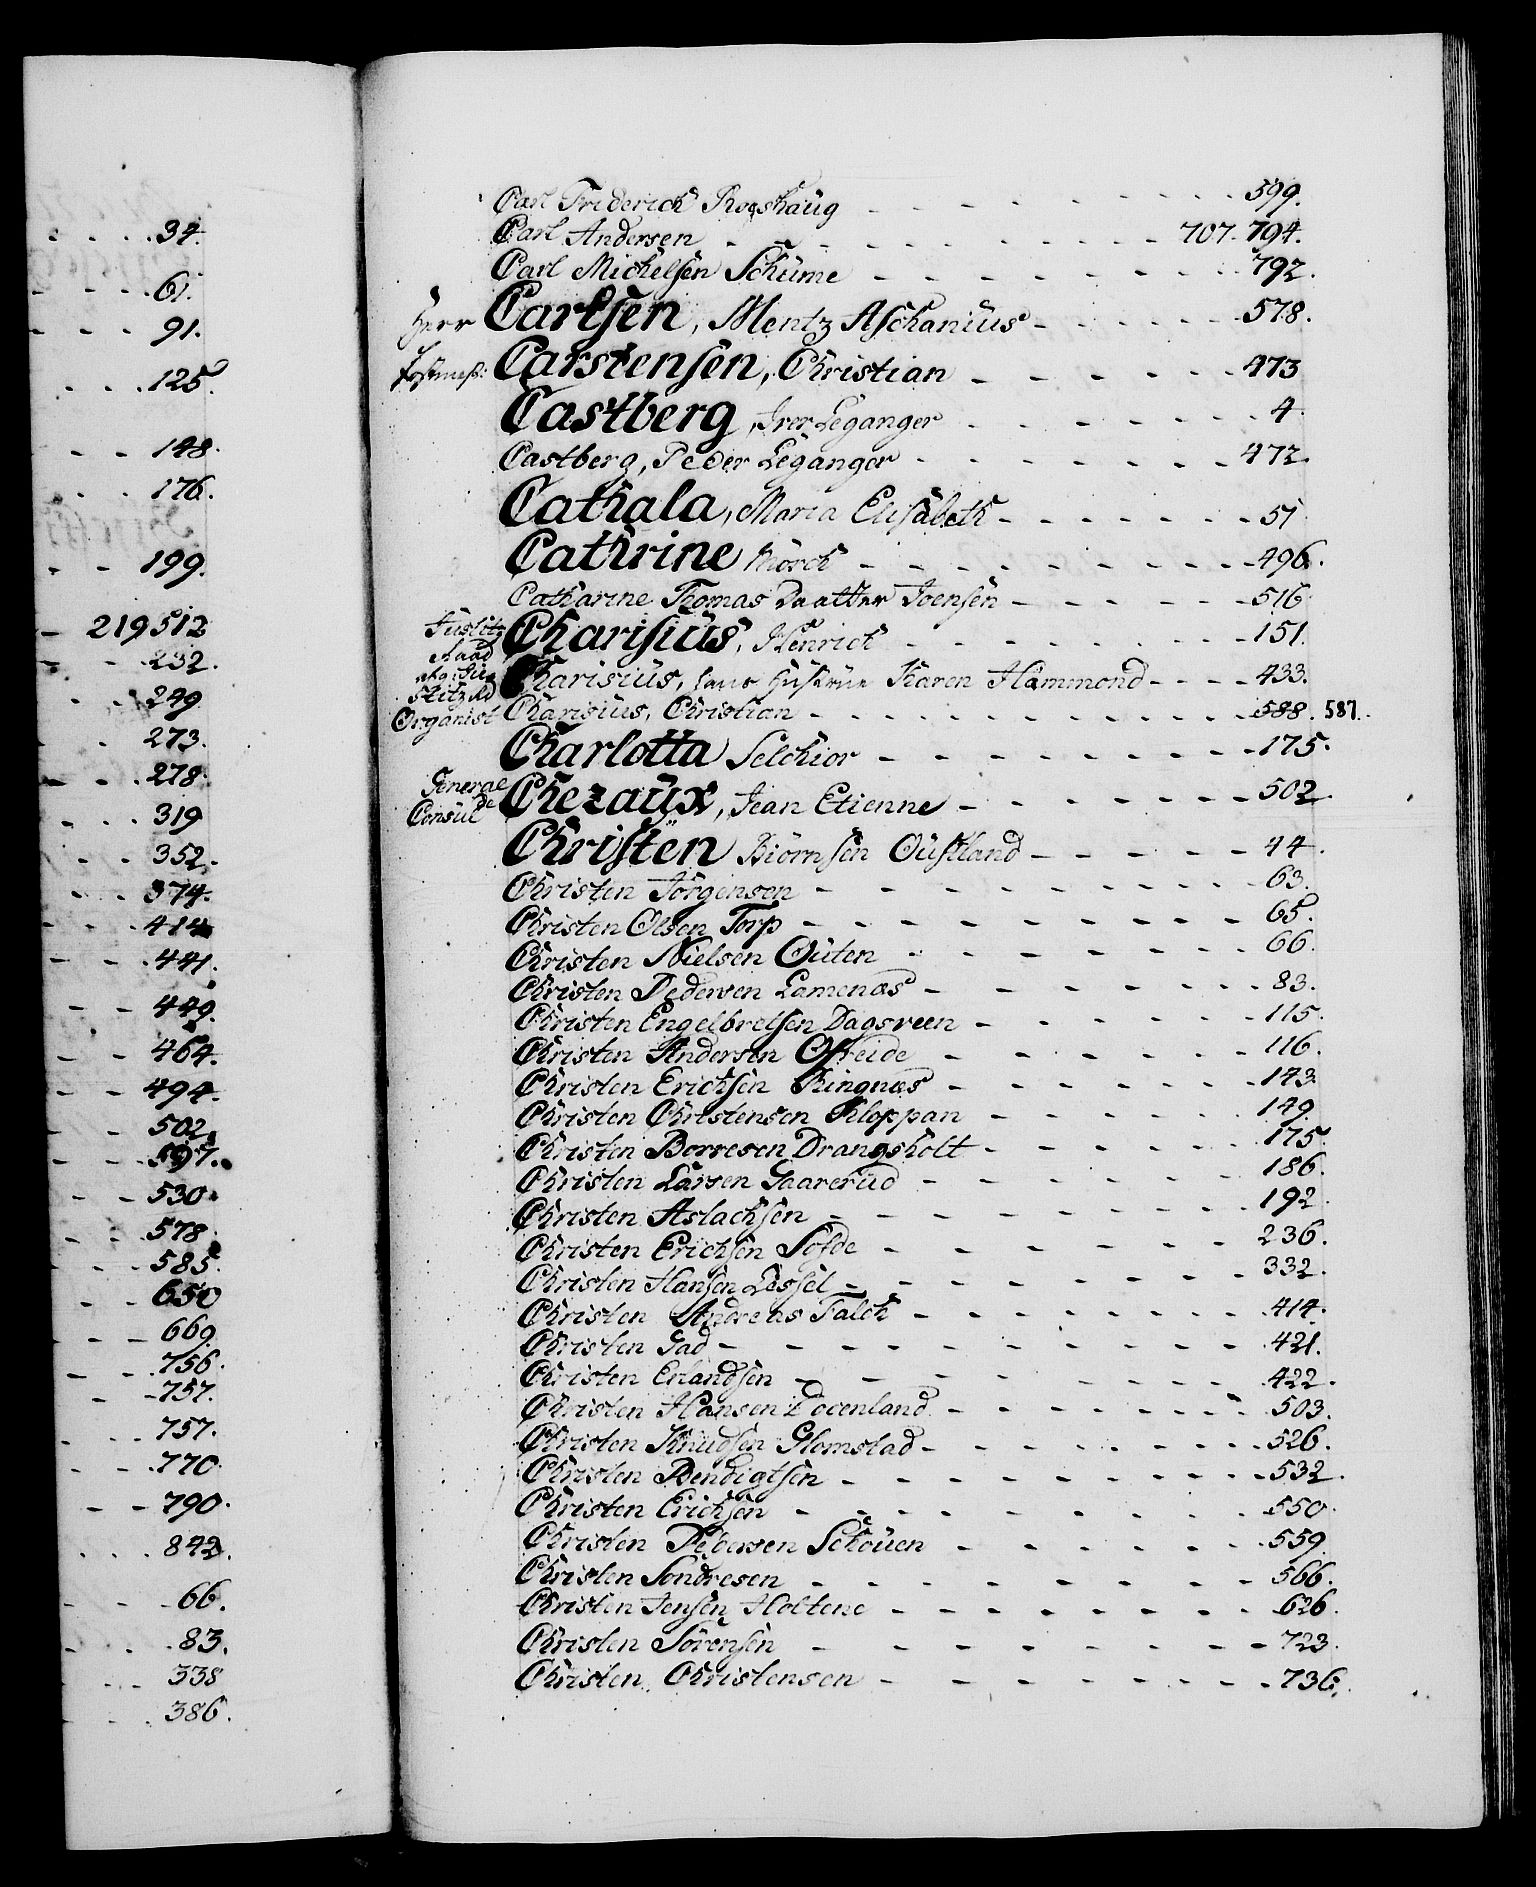 34.
61.
91.
125.
148.
176.
199.
219 512
232.
249
273.
278.
319
352.
374.
414
441.
449.
464.
494.
502.
597.
530.
578.
585.
650
669.
756.
757.
757.
770.
790.
842.
66.
83.
338
386.
Carl Friderich Rogshaüg - - - 599.
Carl Andersen - - - 707. 794.
Carl Michelsen Schüme - - - 792.
Herr Carlsen, Mentz Aschanius - - - 578.
Postmest: Carstensen, Christian - - - 473
Castberg, Iver Leganger - - - 4.
Castberg, Peder Leganger - - - 472.
Cathala, Maria Elisabeth - - - 51
Cathrine Mörch - - - 496.
Catharine Thomas Daatter Joensen - - - 516
Justitz Raad Charisiüs, Henrich - - - 151.
Justitz Rd Charisiüs, hans Hustrue Karen Hammond - - - 433.
Organist Charisiüs, Christian - - - 588. 587.
Charlotta Selchior - - - 175.
General Consül de Chezaüx, Jean Etienne - - - 502.
Christen Biörnsen Oüstland - - - 44.
Christen Jörgensen - - - 63.
Christen Olsen Torp - - - 65.
Christen Nielsen Oüten - - - 66.
Christen Pedersen Lamenæs - - - 83.
Christen Engelbretsen Dagsveen - - - 115.
Christen Andersen Ofreide - - - 116.
Christen Erichsen Ringnæs - - - 143
Christen Christensen Kloppan - - - 149.
Christen Borresen Drangsholt - - - 175.
Christen Larsen Gaarerüd - - - 186.
Christen Aslachsen - - - 192.
Christen Erichsen Sofde - - - 236.
Christen Hansen Lessel - - - 332.
Christen Andreas Falch - - - 414.
Christen Gad - - - 421.
Christen Erlandsen - - - 422.
Christen Hansen Edvenland - - - 503.
Christen Knüdsen Glomstad - - - 526.
Christen Bendigtsen - - - 532.
Christen Erichsen - - - 550.
Christen Pedersen Schoüen - - - 559.
Christen Söndresen - - - 566.
Christen Jensen Holtene - - - 626.
Christen Sörensen - - - 723.
Christen Christensen - - - 736.